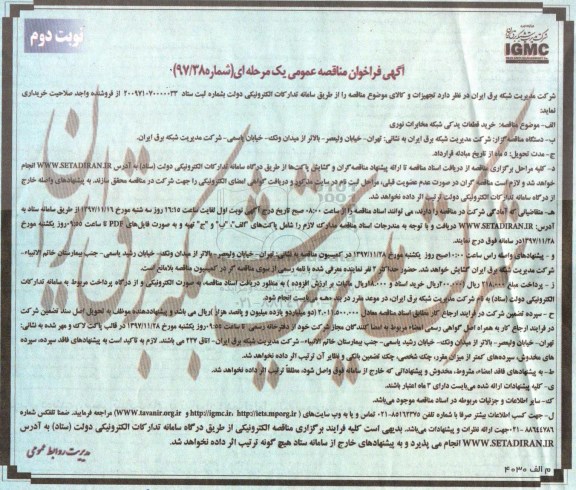 نوبت دوم
IGMC
آگهی فراخوان مناقصه عمومی یک مرحله ای(شماره۹۷/۳۸)۰
شرکت مدیریت شبکه برق ایران در نظر دارد تجهیزات و کالای موضوع مناقصه را از طریق سامانه تدارکات الکترونیکی دولت بشماره ثبت ستاد ۲۰۰۹۷۱۰۷۰۰۰۰۰۳۳ از فروشنده واجد صلاحیت خریداری
نماید:
الف- موضوع مناقصه: خرید قطعات یدکی شبکه مخابرات نوری
ب- دستگاه مناقصه گزار: شرکت مدیریت شبکه برق ایران به نشانی: تهران- خیابان ولیعصر- بالاتر از میدان ونک- خیابان یاسمی- شرکت مدیریت شبکه برق ایران.
ج- مدت تحویل: ۵ ماه از تاریخ مبادله قرارداد.
د- کلیه مراحل برگزاری مناقصه از دریافت اسناد مناقصه تا ارائه پیشنهاد مناقصه گران و گشایش پاکت‌ها از طریق درگاه سامانه تدارکات الکترونیکی دولت (ستاد) به آدرس WWW.SETADIRAN.IR انجام
خواهد شد و لازم است مناقصه گران در صورت عدم عضویت قبلی، مراحل ثبت نام در سایت مذکور و دریافت گواهی امضای الکترونیکی را جهت شرکت در مناقصه محقق سازند. به پیشنهادهای واصله خارج
از درگاه سامانه تدارکات الکترونیکی دولت ترتیب اثر داده نخواهد شد.
هـ- متقاضیانی که آمادگی شرکت در مناقصه را دارند، می توانند اسناد مناقصه را از ساعت ۰۸:۰۰ صبح تاریخ درج آگهی نوبت اول لغایت ساعت ۱۶:۱۵ روز سه شنبه مورخ ۱۳۹۷/۱۱/۱۶ از طریق سامانه ستاد به
آدرس: WWW.SETADIRAN.IR دریافت و با توجه به مندرجات اسناد مناقصه مدارک لازم را شامل پاکت‌های "الف"، "ب" و "ج" تهیه و به صورت فایل‌های PDF تا ساعت ۰۹:۴۵ روز یکشنبه مورخ
۱۳۹۷/۱۱/۲۸ در سامانه فوق درج نمایند.
و - پیشنهادهای واصله راس ساعت ۱۰:۰۰ صبح روز یکشنبه مورخ ۱۳۹۷/۱۱/۲۸ در کمیسیون مناقصه به نشانی: تهران- خیابان ولیعصر- بالاتر از میدان ونک- خیابان رشید یاسمی- جنب بیمارستان خاتم الانبیاء-
شرکت مدیریت شبکه برق ایران گشایش خواهد شد. حضور حداکثر ۲ نفر نماینده معرفی شده با نامه رسمی از سوی مناقصه گر در کمیسیون مناقصه بلامانع است.
الکترونیکی دولت (ستاد) به نام شرکت مدیریت شبکه برق ایران، در موعد مقرر در بند «هـ» الزامیست انجام شود.
تهران- خیابان ولیعصر- بالاتر از میدان ونک- خیابان رشید یاسمی- جنب بیمارستان خاتم الانبیاء- شرکت مدیریت شبکه برق ایران- اتاق ۲۲۷ می باشند. لازم به تاکید است به پیشنهادهای فاقد سپرده، سپرده
های مخدوش، سپرده‌های کمتر از میزان مقرر، چک شخصی، چک تضمین بانکی و نظایر آن ترتیب اثر داده نخواهد شد.
ط- به پیشنهادهای فاقد امضاء، مشروط، مخدوش و پیشنهاداتی که خارج از سامانه فوق واصل شود، مطلقاً ترتیب اثر داده نخواهد شد.
ی- کلیه پیشنهادات ارائه شده می‌بایست دارای ۳ ماه اعتبار باشند.
ک- سایر اطلاعات و جزئیات مربوطه در اسناد مناقصه موجود می‌باشد.
ل- جهت کسب اطلاعات بیشتر صرفا با شماره تلفن ۸۵۱۶۲۳۷۵-۰۲۱ تماس و یا به وب سایت‌های (http://iets.mporg.ir ،http://igmc.ir و WWW.tavanir.org.ir) مراجعه فرمایید. ضمنا تلفکس شماره
۸۸۶۴۴۷۸۶-۰۲۱ جهت ارائه نظرات و پیشنهادات می‌باشد. بدیهی است کلیه فرآیند برگزاری مناقصه الکترونیکی از طریق درگاه سامانه تدارکات الکترونیکی دولت (ستاد) به آدرس
WWW.SETADIRAN.IR انجام می پذیرد و به پیشنهادهای خارج از سامانه ستاد هیچ گونه ترتیب اثر داده نخواهد شد.
مدیریت روابط عمومی
م الف ۴۰۳۰